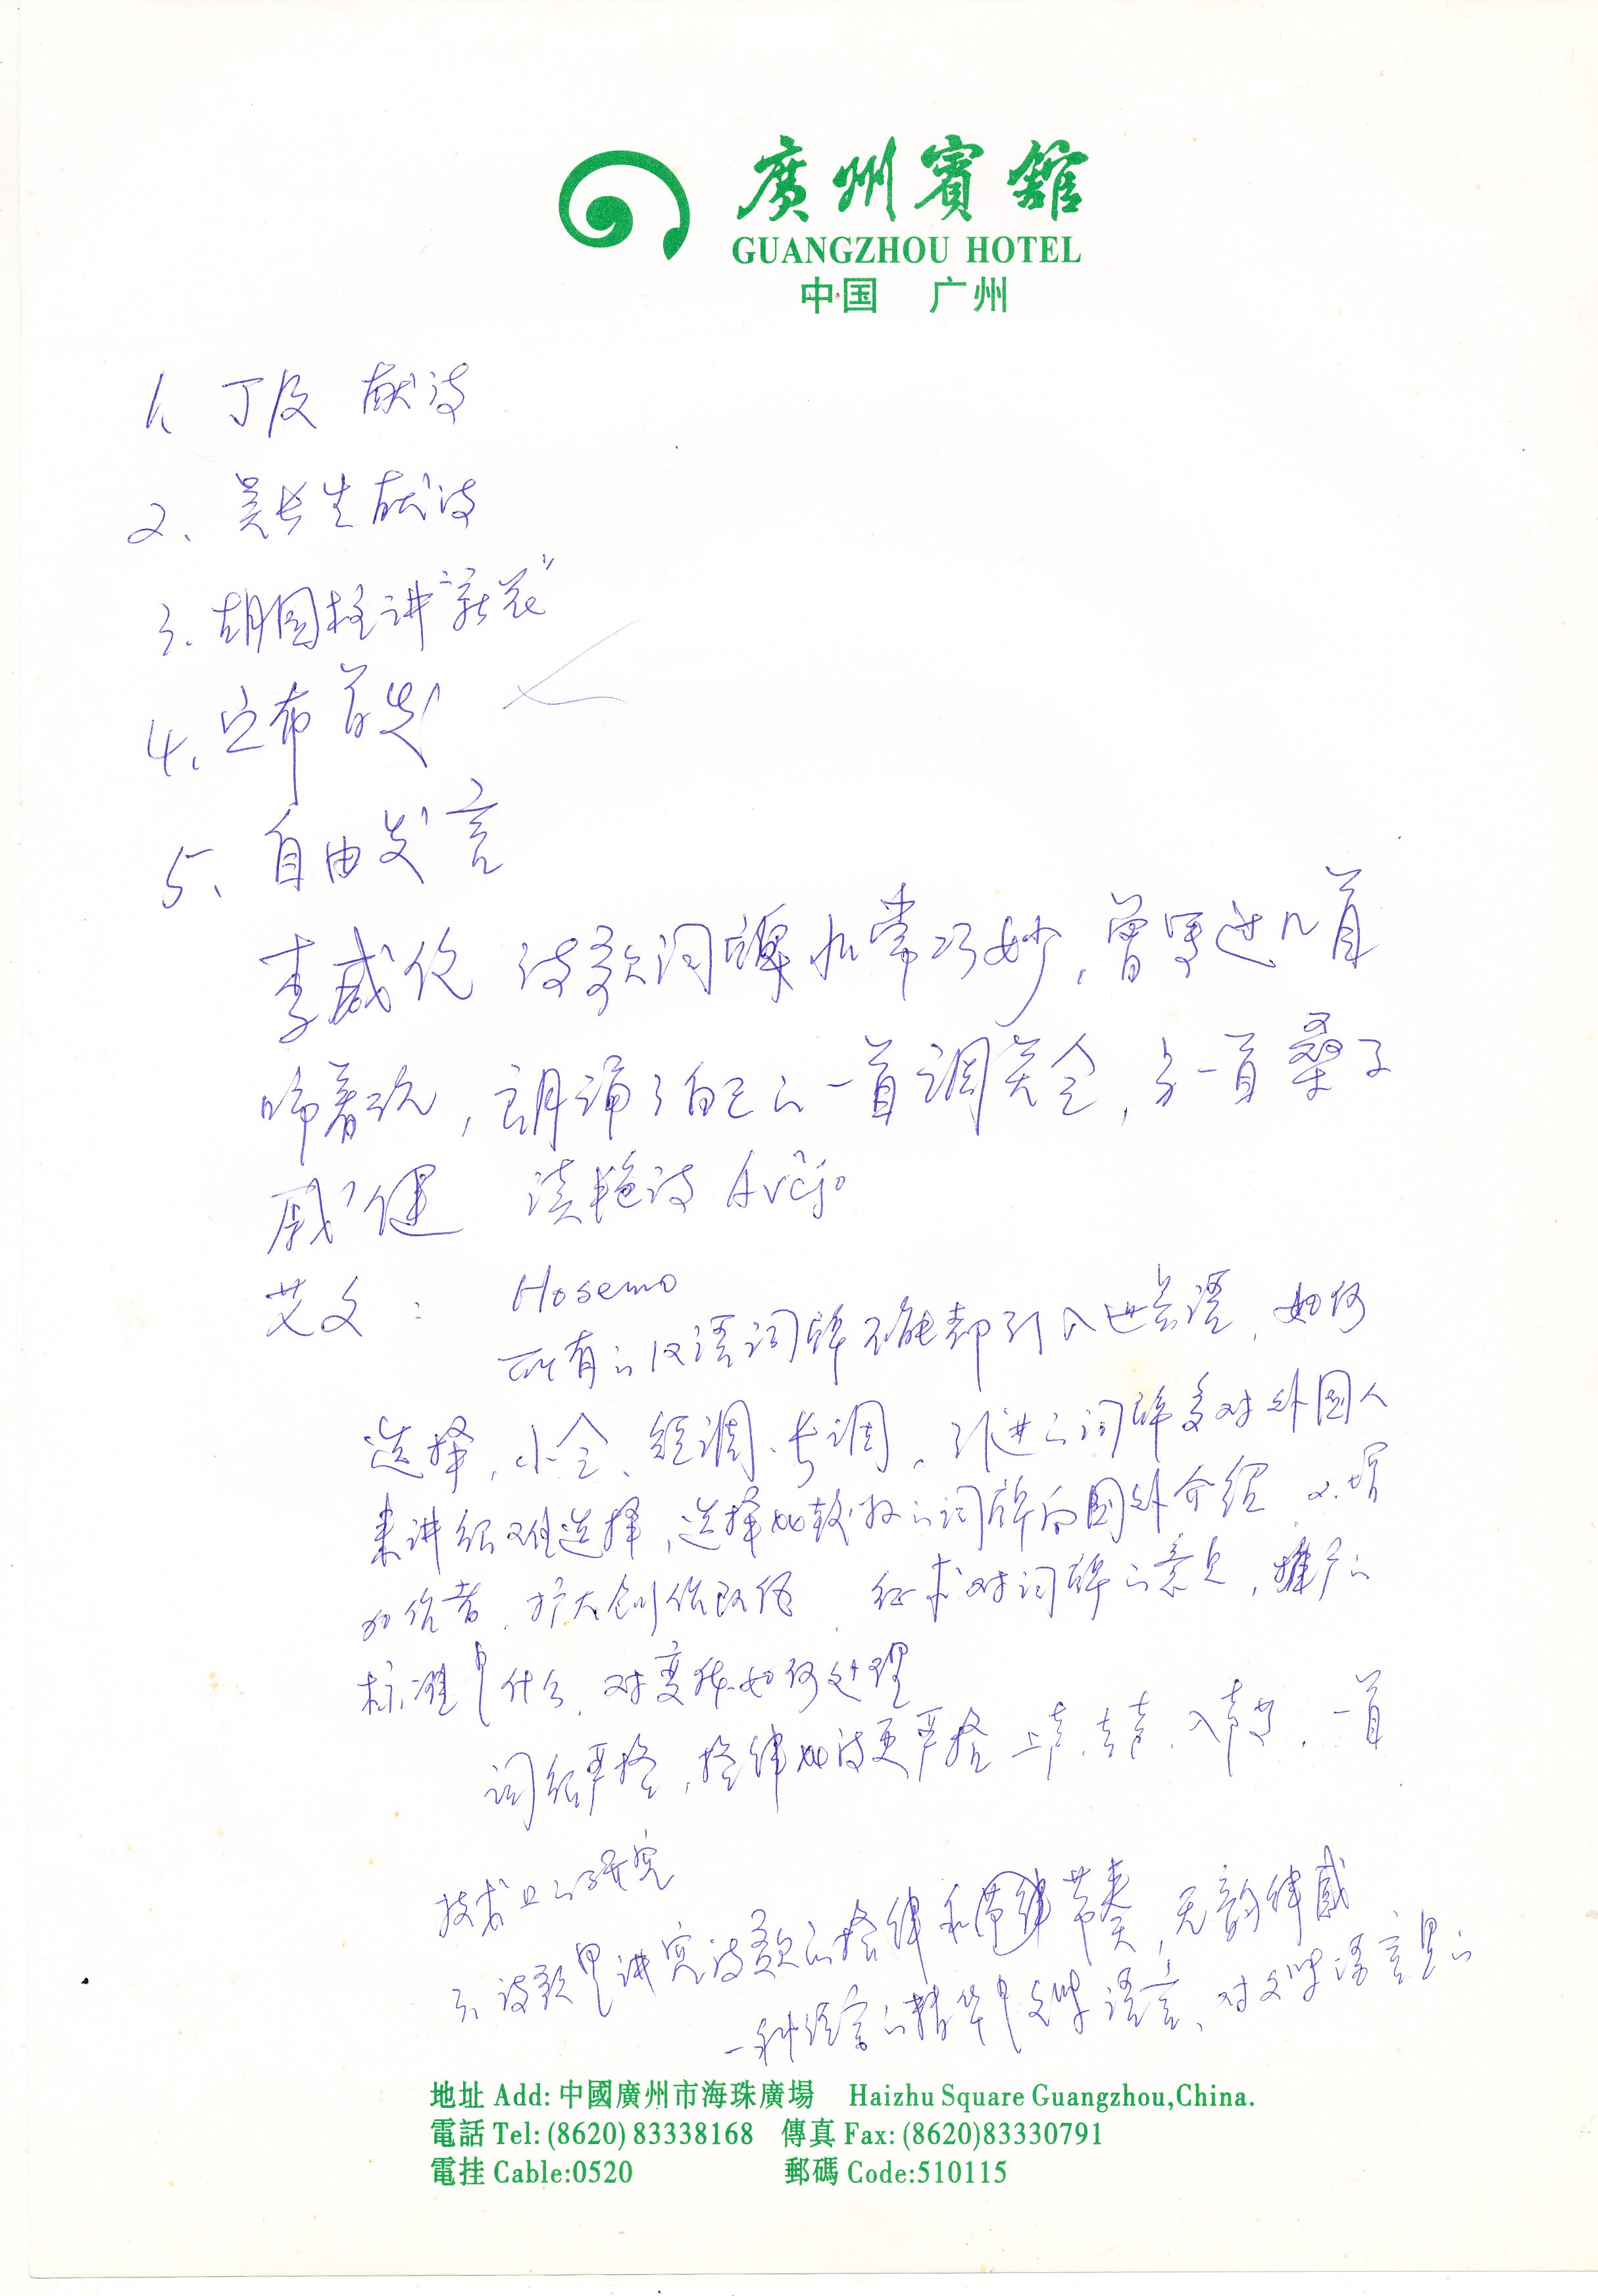 廣州賓館
GUANGZHOU HOTEL
中国 广州
1、丁及 献诗
2、吴长生献诗
3、胡国柱讲"新花"
4、宣布首发
5、自由发言
李威伦 诗歌词牌非常巧妙,曾写过几首
啼着说,朗诵了自己的一首调笑令,另一首桑子
戚健 谈艳诗
艾文: Hosemo
所有的汉语词牌不能都引入进英语,如何
选择,小令、短调、长调,引进的词牌多对外国人
来讲很难选择,选择比较好的词牌向国外介绍 2.增
加作者,扩大创作队伍,征求对词牌的意见,推广的
标准是什么,对变体如何处理
词很严格,格律比诗更严格 上声、去声、入声,一首
技术上的研究
3、诗歌是讲究诗歌的格律和节奏,无韵律感
一种语言的精华是文学语言、对文学语言里的
地址 Add: 中國廣州市海珠廣場 Haizhu Square Guangzhou,China.
電話 Tel: (8620) 83338168 傳真 Fax: (8620)83330791
電挂 Cable:0520 郵碼 Code:510115